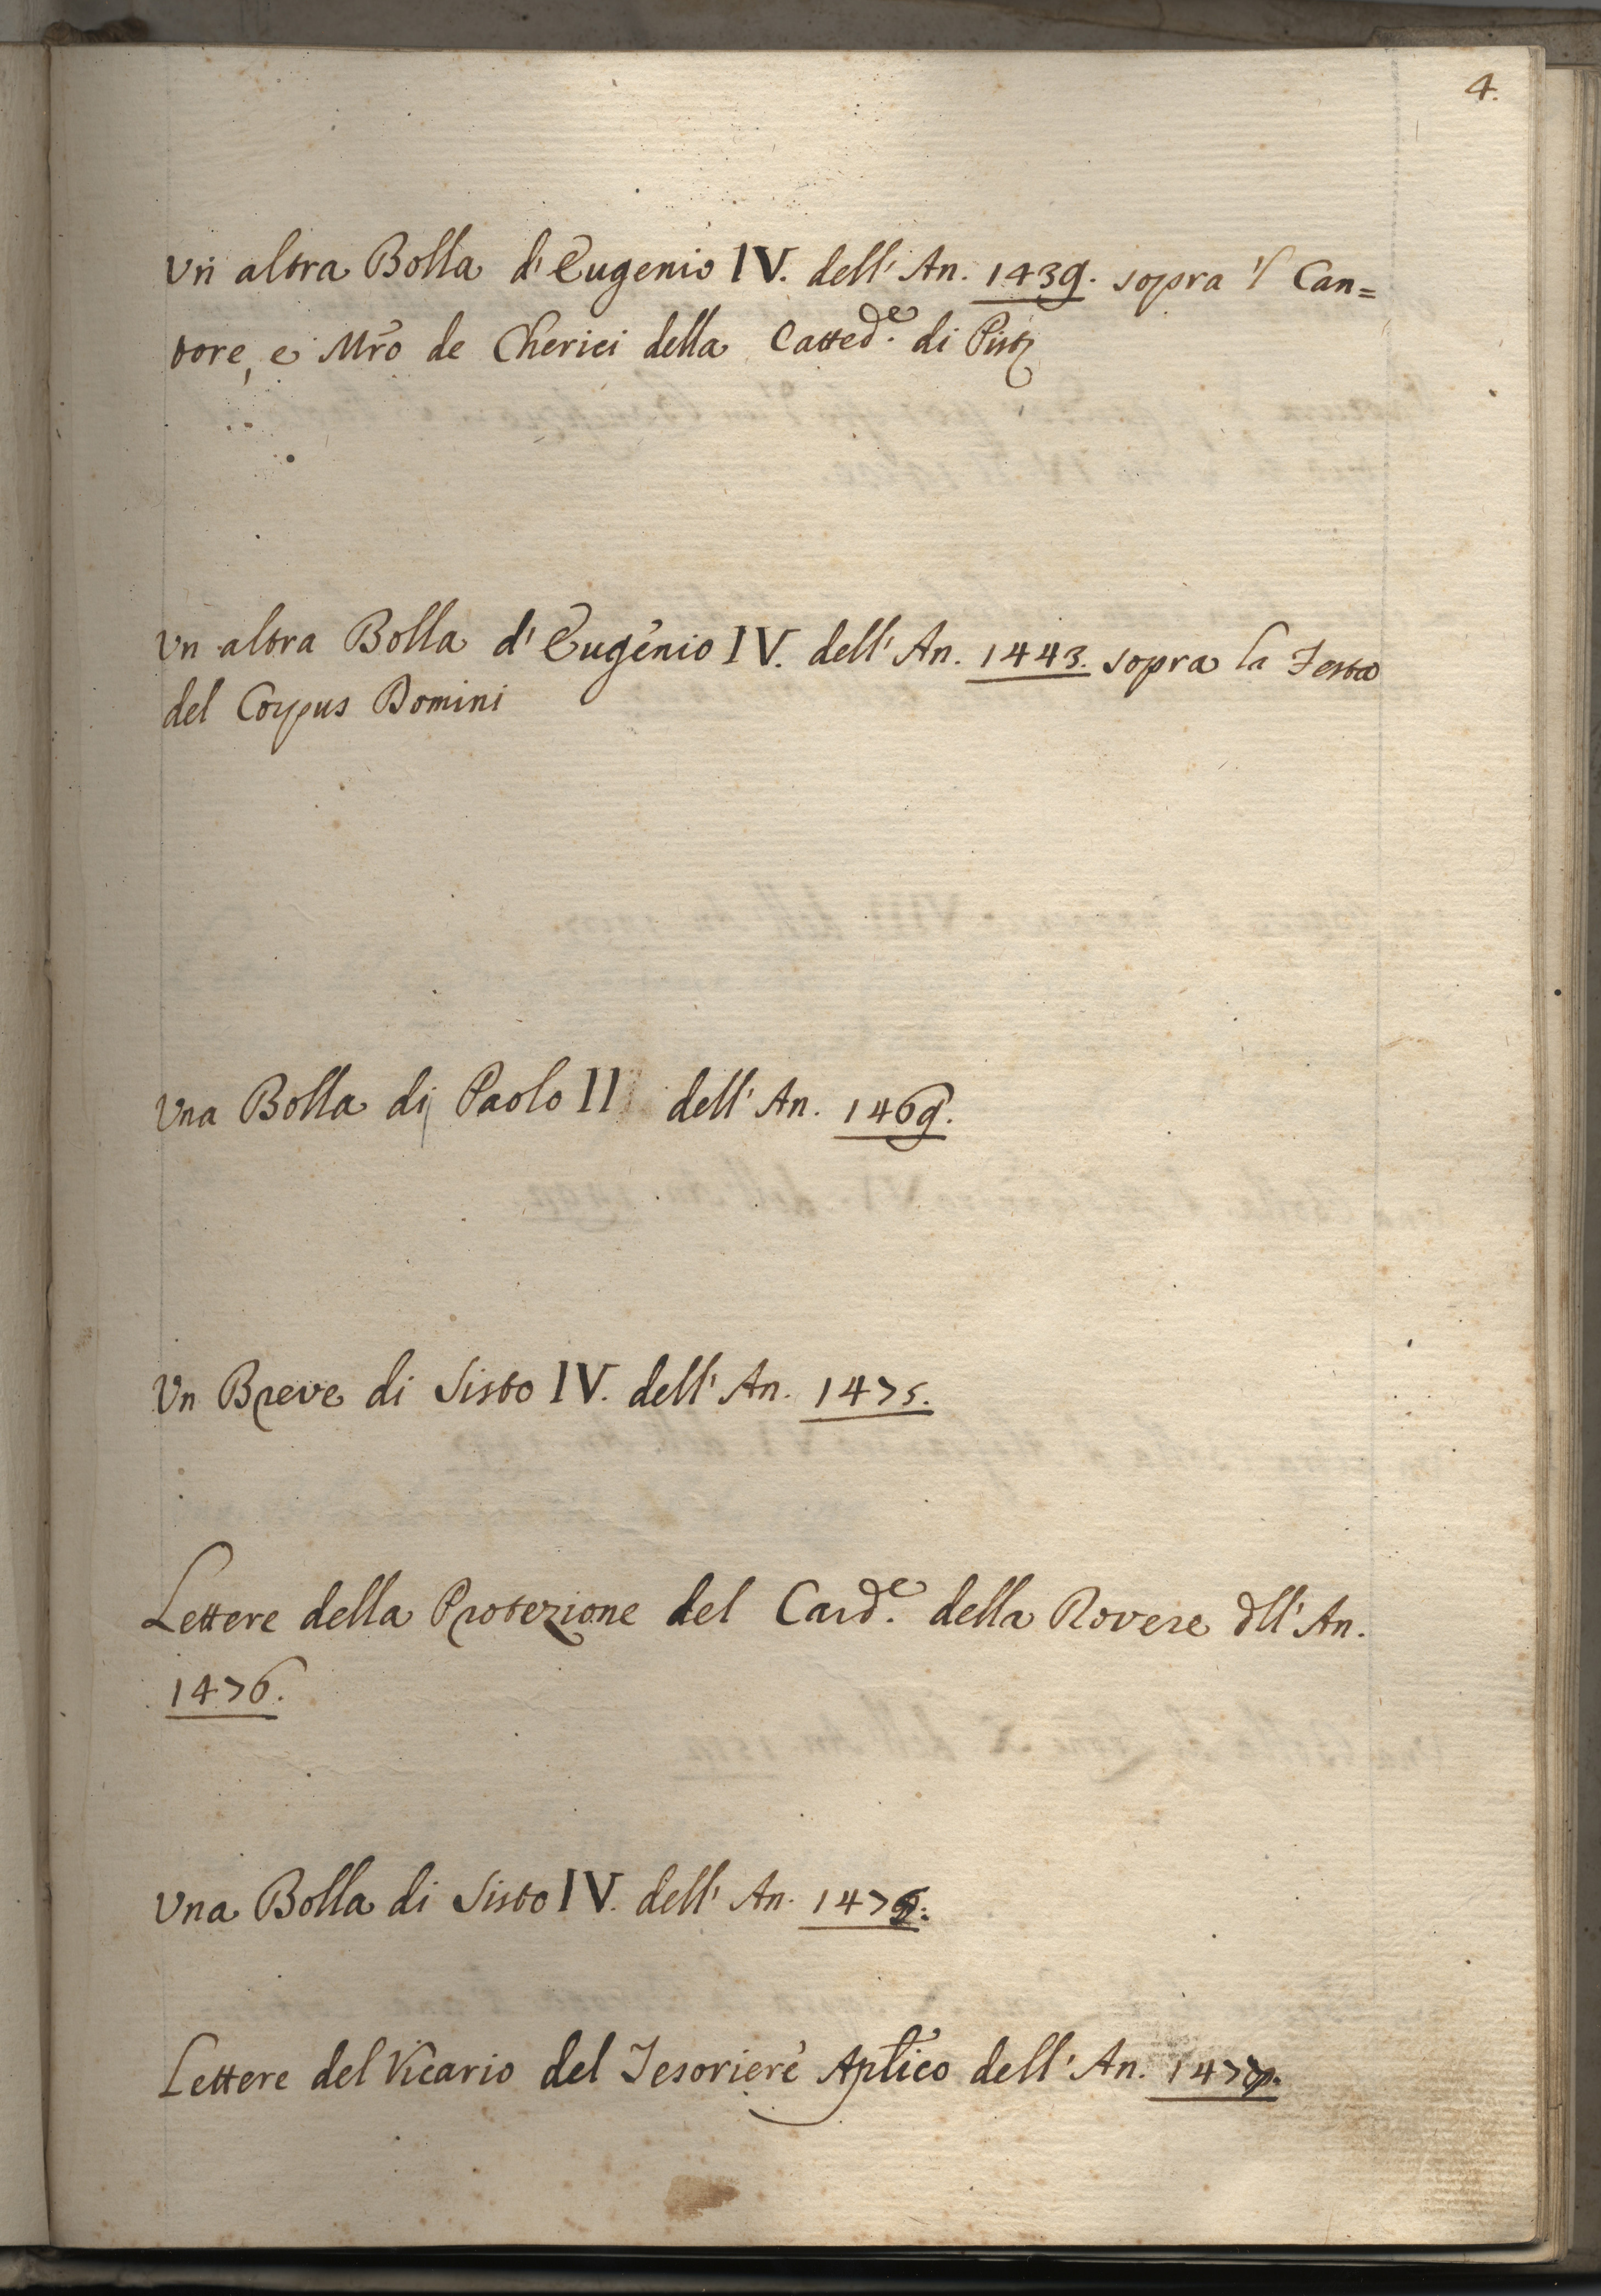 4.
Un altra Bolla d'Eugenio IV. dell'An. 1439. sopra 'l Can=
tore, e Mrō de Cherici della Catted.e di Pist
Un altra Bolla d'Eugenio IV. dell'An. 1443. sopra la Festa
del Corpus Domini
Una Bolla di Paolo II dell'An. 1469.
Un Breve di Sisto IV. dell'An. 1475.
Lettere della Protezione del Card.e della Rovere dll'An.
1476.
Una Bolla di Sisto IV. dell'An.
Lettere del Vicario del Tesoriere Aplico dell'An.